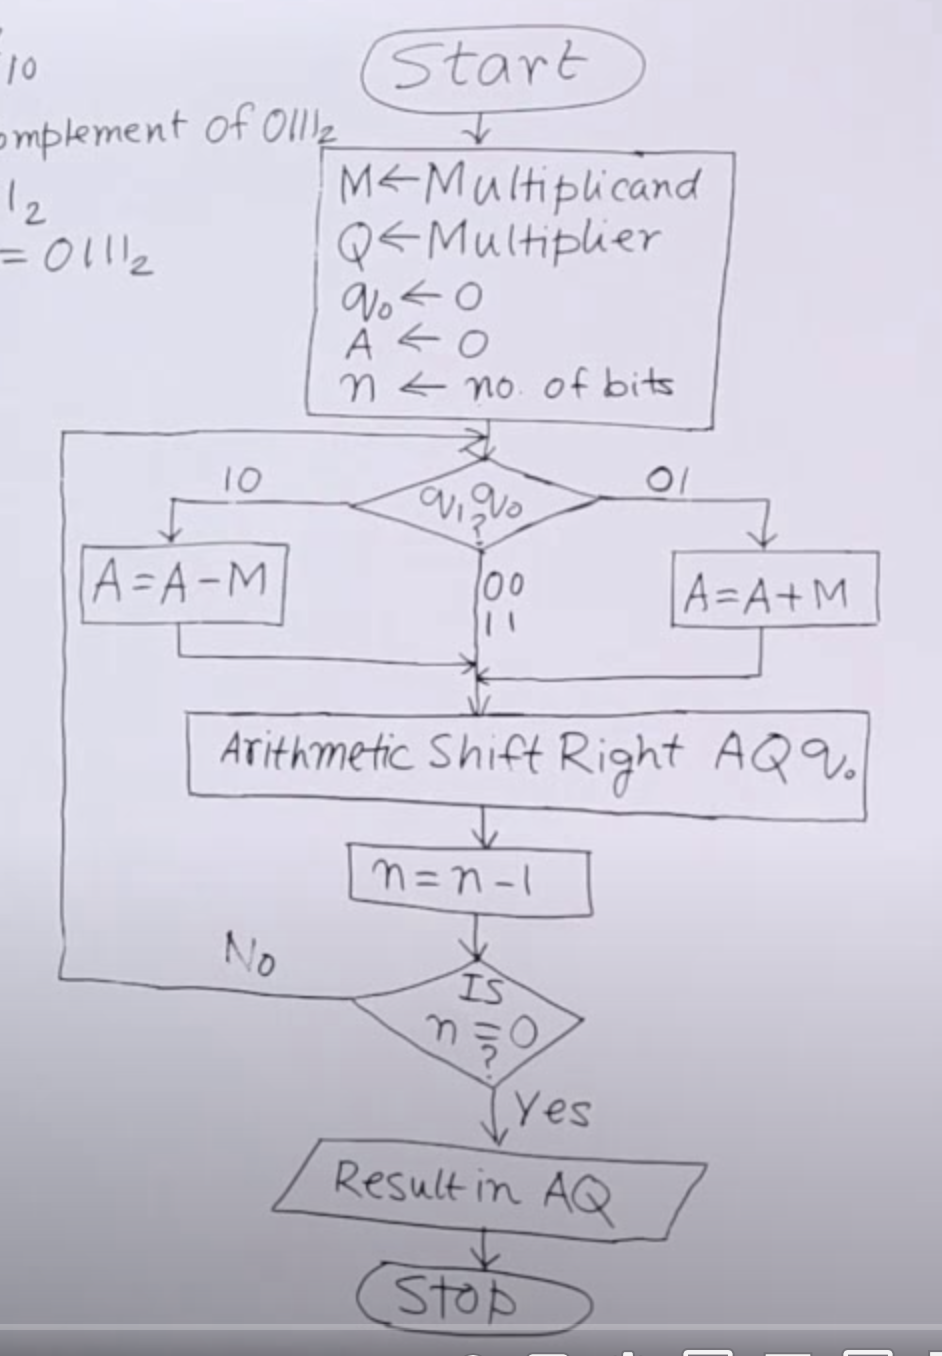 10
Start
omplement of 0111₂
1₂
= 0111₂
M←Multiplicand
Q←Multiplier
q₀←0
A ←0
n ← no. of bits
10
q₁q₀
?
01
A=A-M
00
11
A=A+M
Arithmetic Shift Right AQq₀
n=n-1
No
IS
n=0
?
Yes
Result in AQ
Stop